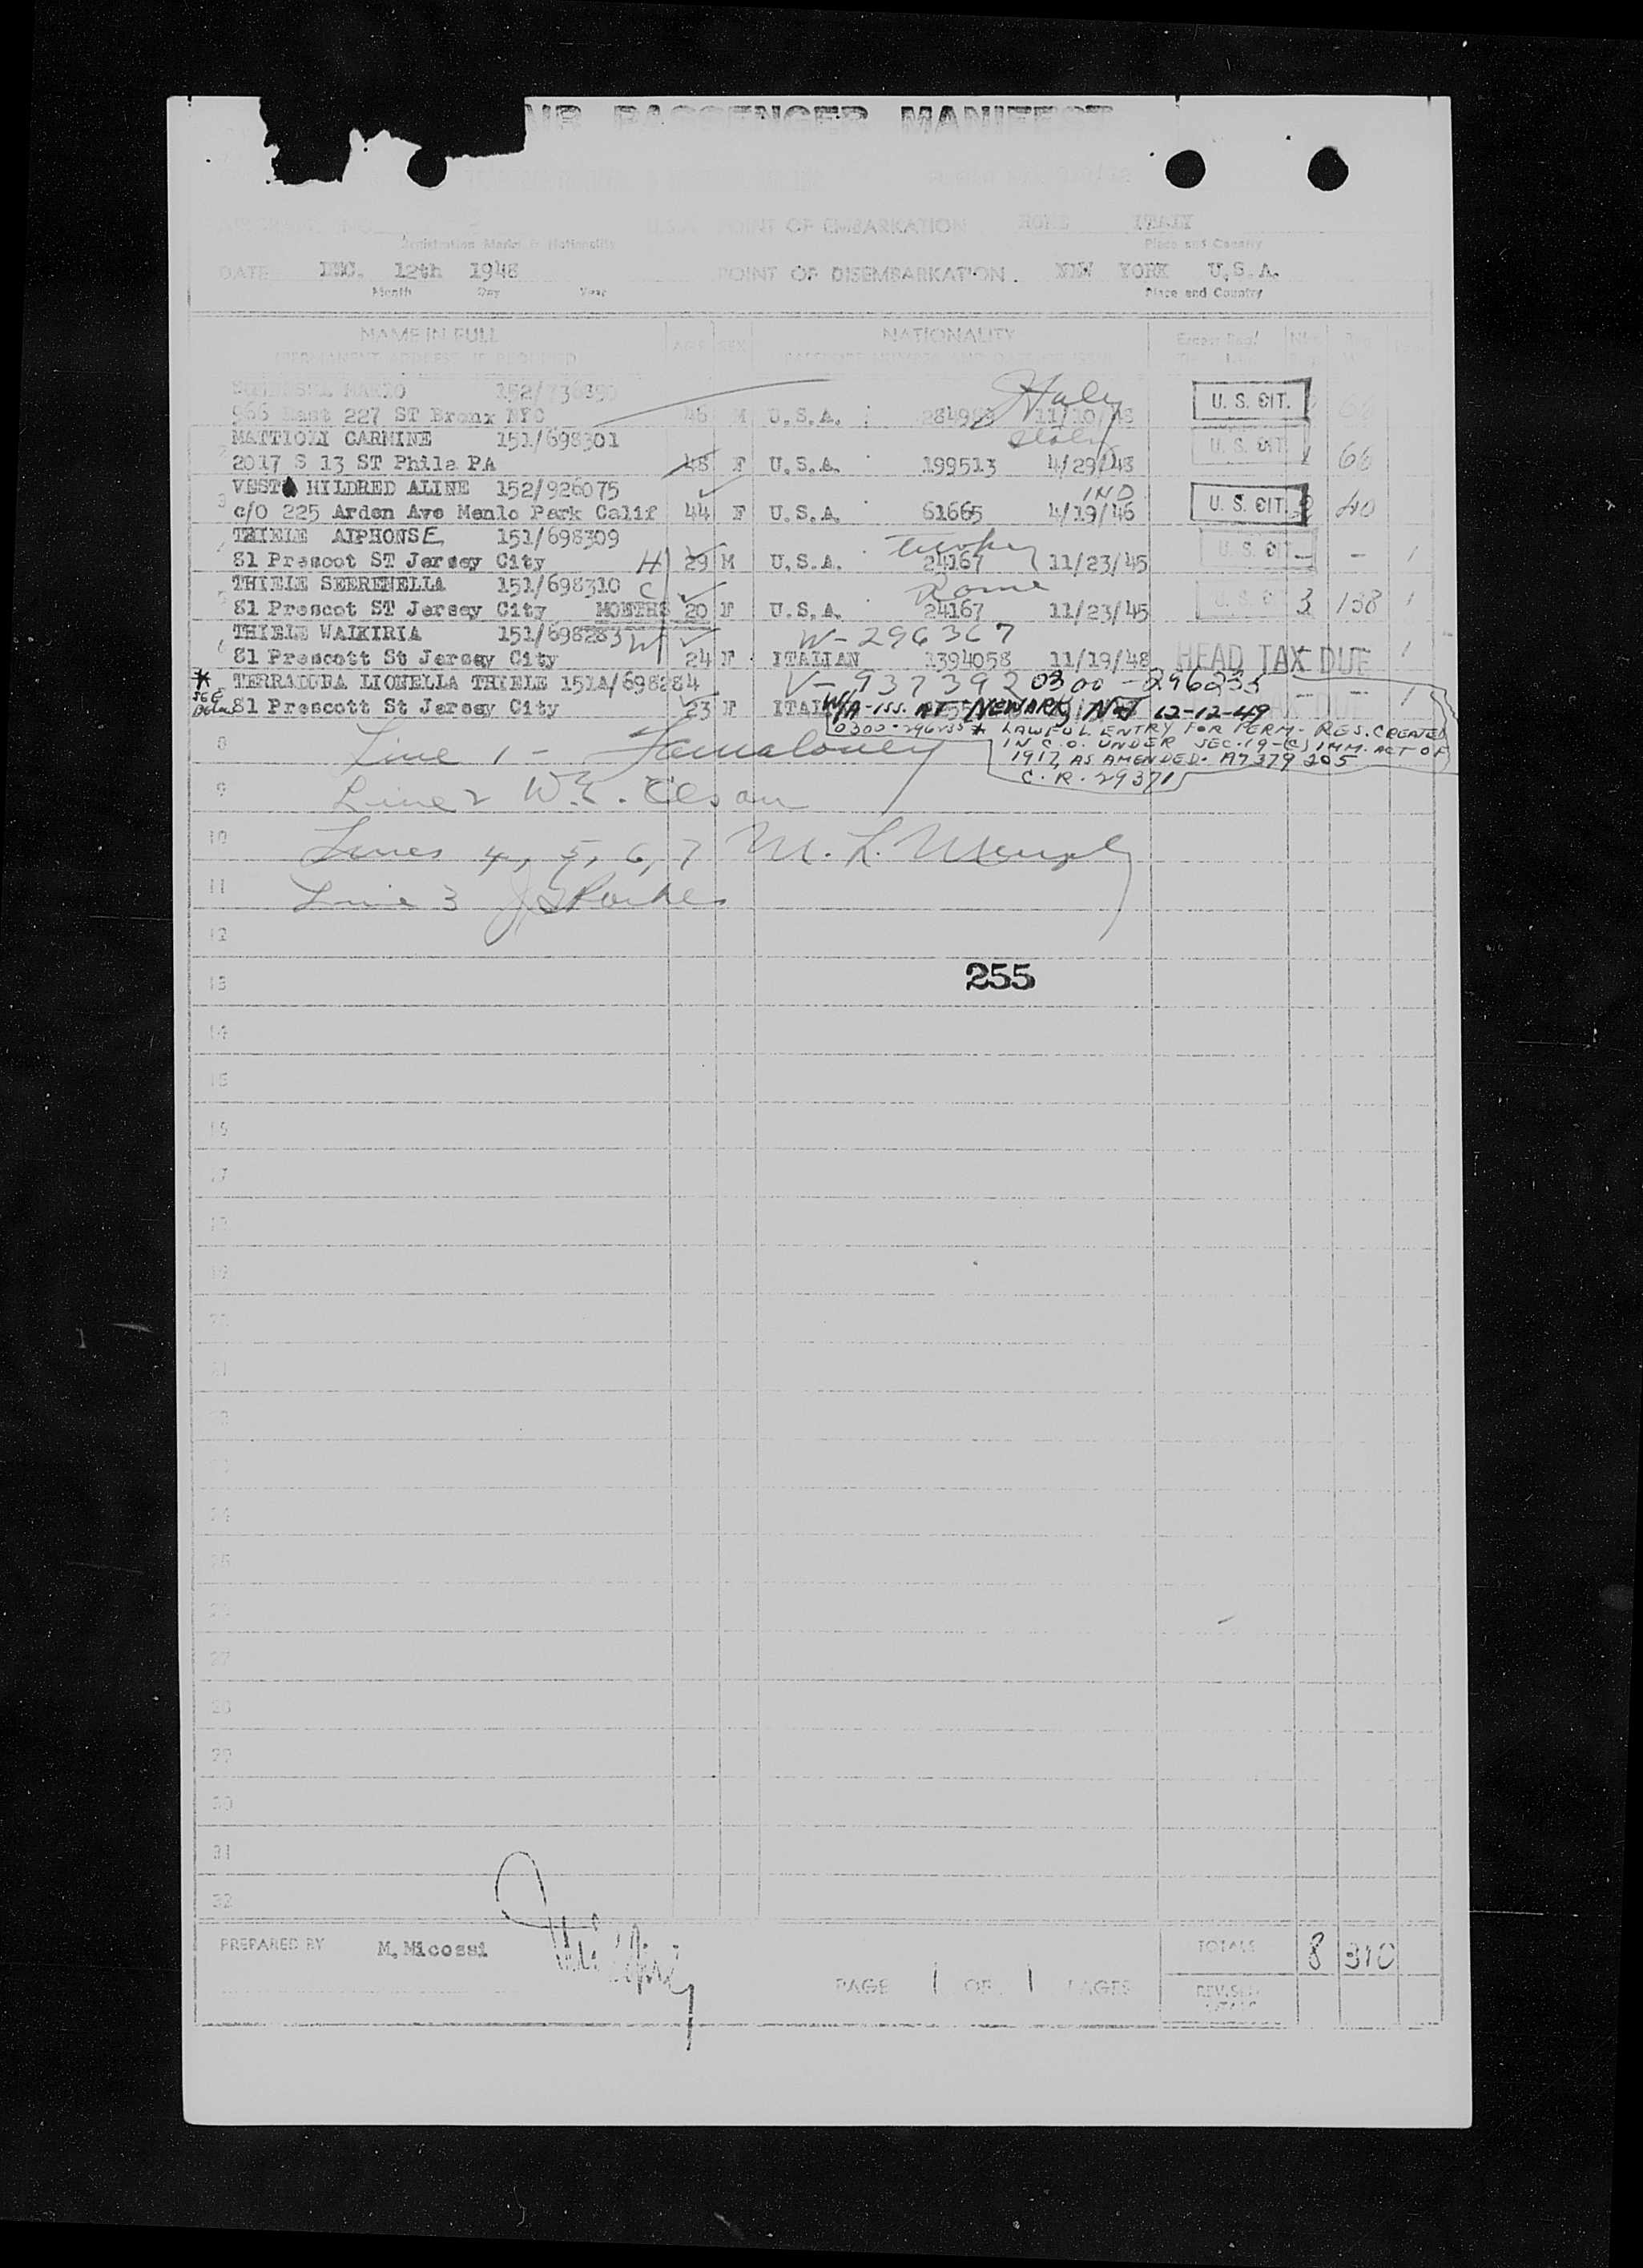 AIR PASSENGER MANIFEST
U.S.A. POINT OF EMBARKATION ROME ITALY
Registration Marks & Nationality Place and Country
DATE DEC. 12th 1948 POINT OF DISEMBARKATION. NEW YORK U.S.A.
Month Day Year Place and Country
NAME IN FULL AGE SEX NATIONALITY
MARIO 152/ Italy
966 East 227 ST Bronx NYC 46 M U.S.A. 11/10/48 U. S. CIT.
MATTIOLI CARMINE 151/698301 Italy
2017 S 13 ST Phila PA 48 F U.S.A. 199513 4/29/48 U. S. CIT. 1 66
VESTA HILDRED ALINE 152/926075 IND
c/o 225 Arden Ave Menlo Park Calif 44 F U.S.A. 61665 4/19/46 U. S. CIT. 40
THIELE AlPHONSE 151/698309
81 Prescot ST Jersey City H 29 M U.S.A. 24167 11/23/45 U. S. CIT - - 1
THIELE SEERENELLA 151/698310 C Rome
81 Prescot ST Jersey City MONTHS 20 F U.S.A. 24167 11/23/45 U. S. C 3 138 1
THIELE WALKIRIA 151/698283 W W-296367
81 Prescott St Jersey City 24 F ITALIAN 1394058 11/19/48 HEAD TAX DUE 1
* TERRADURA LIONELLA THIELE 151A/698284 V-937392 0300-296235
SEE Below 81 Prescott St Jersey City 23 F ITAL W/A-ISS. AT NEWARK, NJ 12-12-49 - - 1
0300-296235 * LAWFUL ENTRY FOR PERM. RES. CREATED
IN C.O. UNDER SEC. 19-(C) IMM. ACT OF
1917, AS AMENDED. A7379205
C.R. 29371
8 Line 1 -
9 Line 2 W.E.
10 Lines 4, 5, 6, 7 M. L. Murphy
11 Line 3
12
13 255
14
15
16
17
18
19
20
21
22
23
24
25
26
27
28
29
30
31
32
PREPARED BY M. Micossi TOTALS 8 310
PAGE 1 OF 1 PAGES REVISED TOTALS